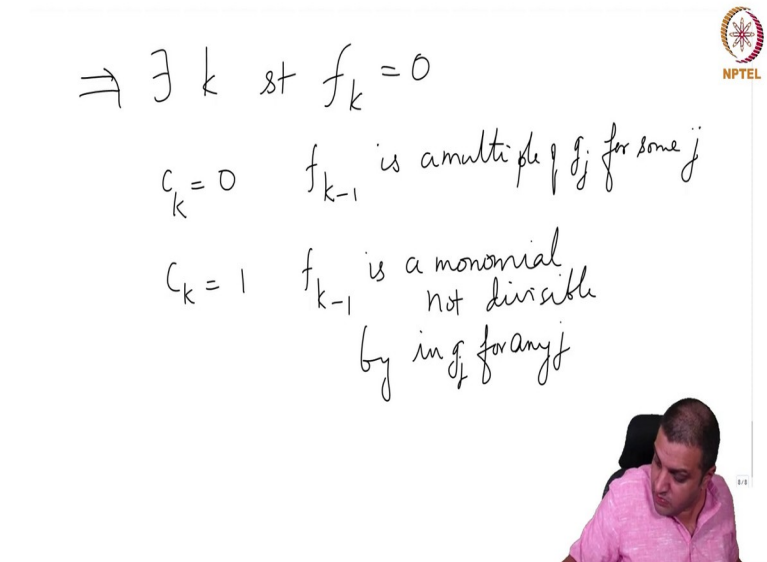 ⇒ ∃ k st f_k = 0
NPTEL
c_k = 0 f_{k-1} is a multiple of g_j for some j
c_k = 1 f_{k-1} is a monomial
not divisible
by in g_j for any j
8/8